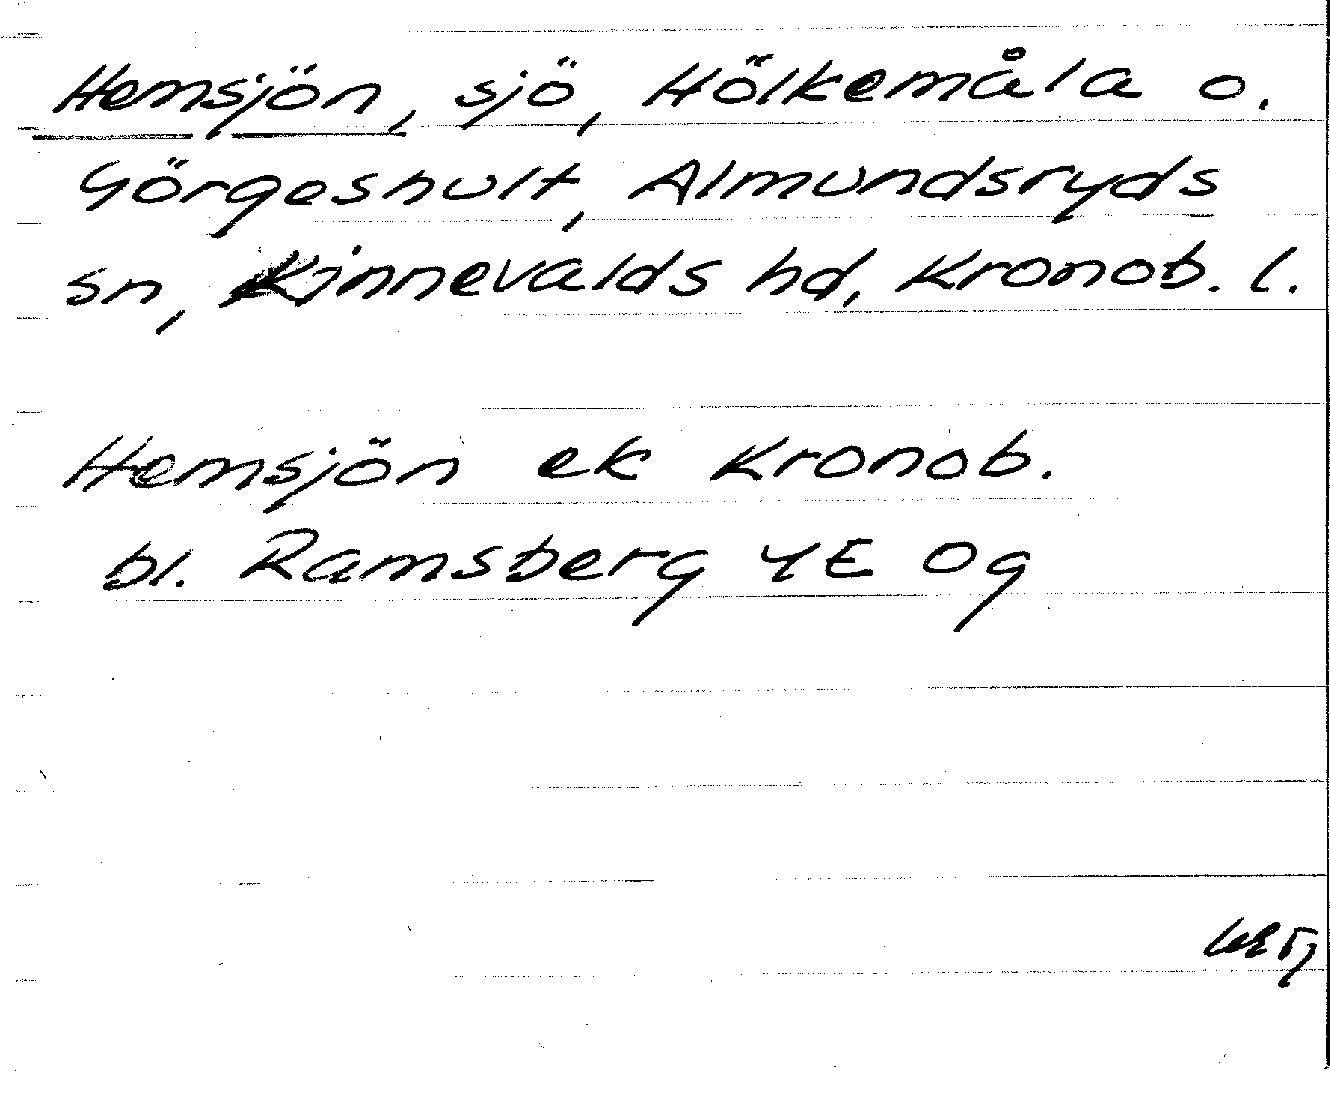 Hemsjön, sjö, Hölkemåla o.
Görgeshult, Almundsryds
sn, Kinnevalds hd, Kronob. l.
Hemsjön ek Kronob.
bl. Ramsberg 4E 0g